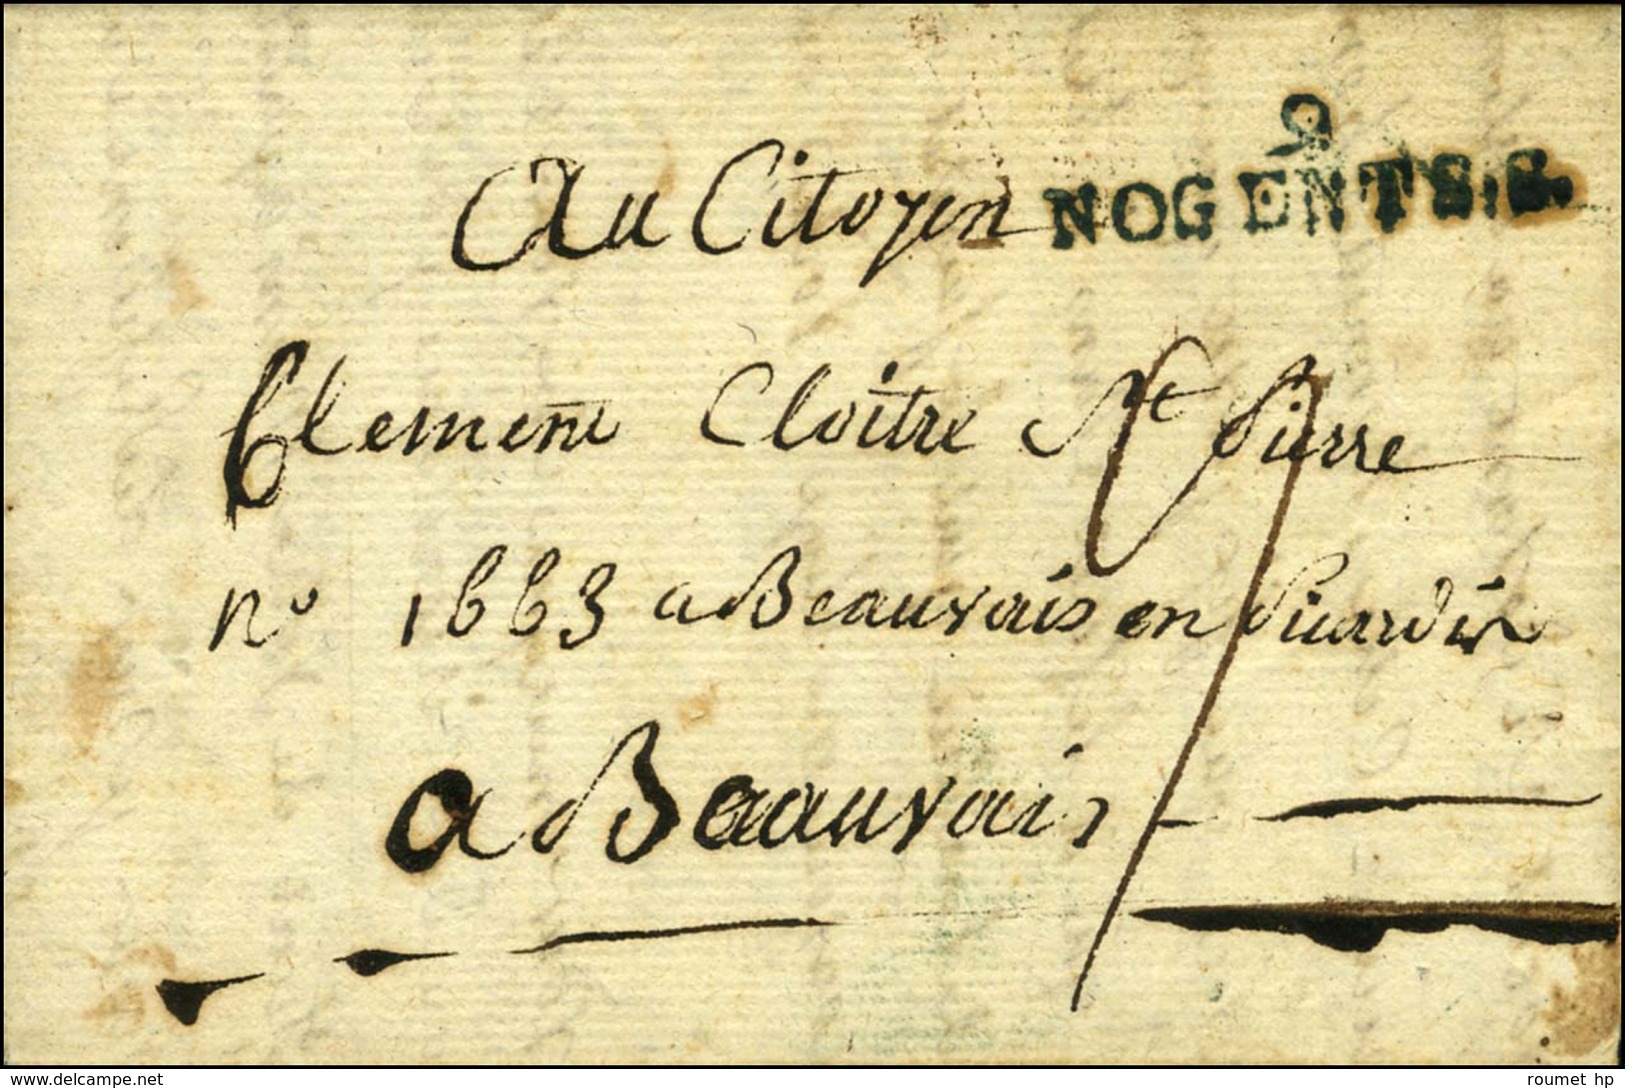 9
NOGENT S.S.
Au Citoyen
Clement Cloitre St Pierre
no 1663 a Beauvais en Picardie
a Beauvais
delcampe.net
roumet hp